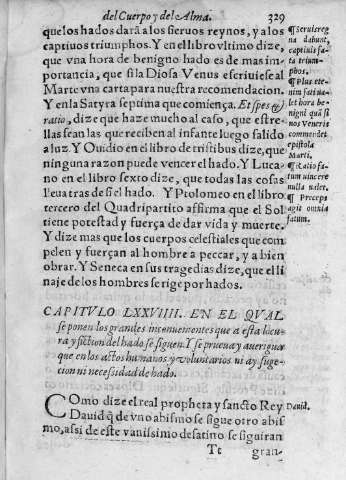 del Cuerpo y del Alma. 329
que los hados dará a los sieruos reynos, y a los
captiuos triumphos. Y en el libro vltimo dize,
que vna hora de benigno hado es de mas im-
portancia, que si la Diosa Venus escriuiesse al
Marte vna carta para nuestra recomendacion.
Y en la Satyra septima que comiença. Et spes &
ratio, dize que haze mucho al caso, que estre-
llas sean las que reciben al infante luego salido
a luz. Y Ouidio en el libro de tristibus dize, que
ninguna razon puede vencer el hado. Y Luca-
no en el libro sexto dize, que todas las cosas
lleua tras de si el hado. Y Ptolomeo en el libro
tercero del Quadripartito affirma que el Sol
tiene potestad y fuerça de dar vida y muerte.
Y dize mas que los cuerpos celestiales que com
pelen y fuerçan al hombre a peccar, y a bien
obrar. Y Seneca en sus tragedias dize, que el li-
naje de los hombres se rige por hados.
¶ Seruis reg
na dabunt,
captiuis fa-
ta trium-
phos.
¶ Plus ete-
nim fati va-
let hora be-
nigni quã si
nos Veneris
commendet
epistola
Marti.
¶ Ratio fa-
tum vincere
nulla valet.
agit omnia
fatum.
CAPITVLO LXXVIIII. EN EL QVAL
se ponen los grandes inconuenientes que a esta locu
ra y fiction del hado se siguen. Y se prueua y aueriguar
que en los actos humanos y voluntarios ni ay suge-
cion ni necessidad de hado.
COmo dize el real propheta y sancto Rey
Dauid q̃ de vno abismo se sigue otro abis
mo, assi de este vanissimo desatino se seguiran
Dauid.
Tt gran-